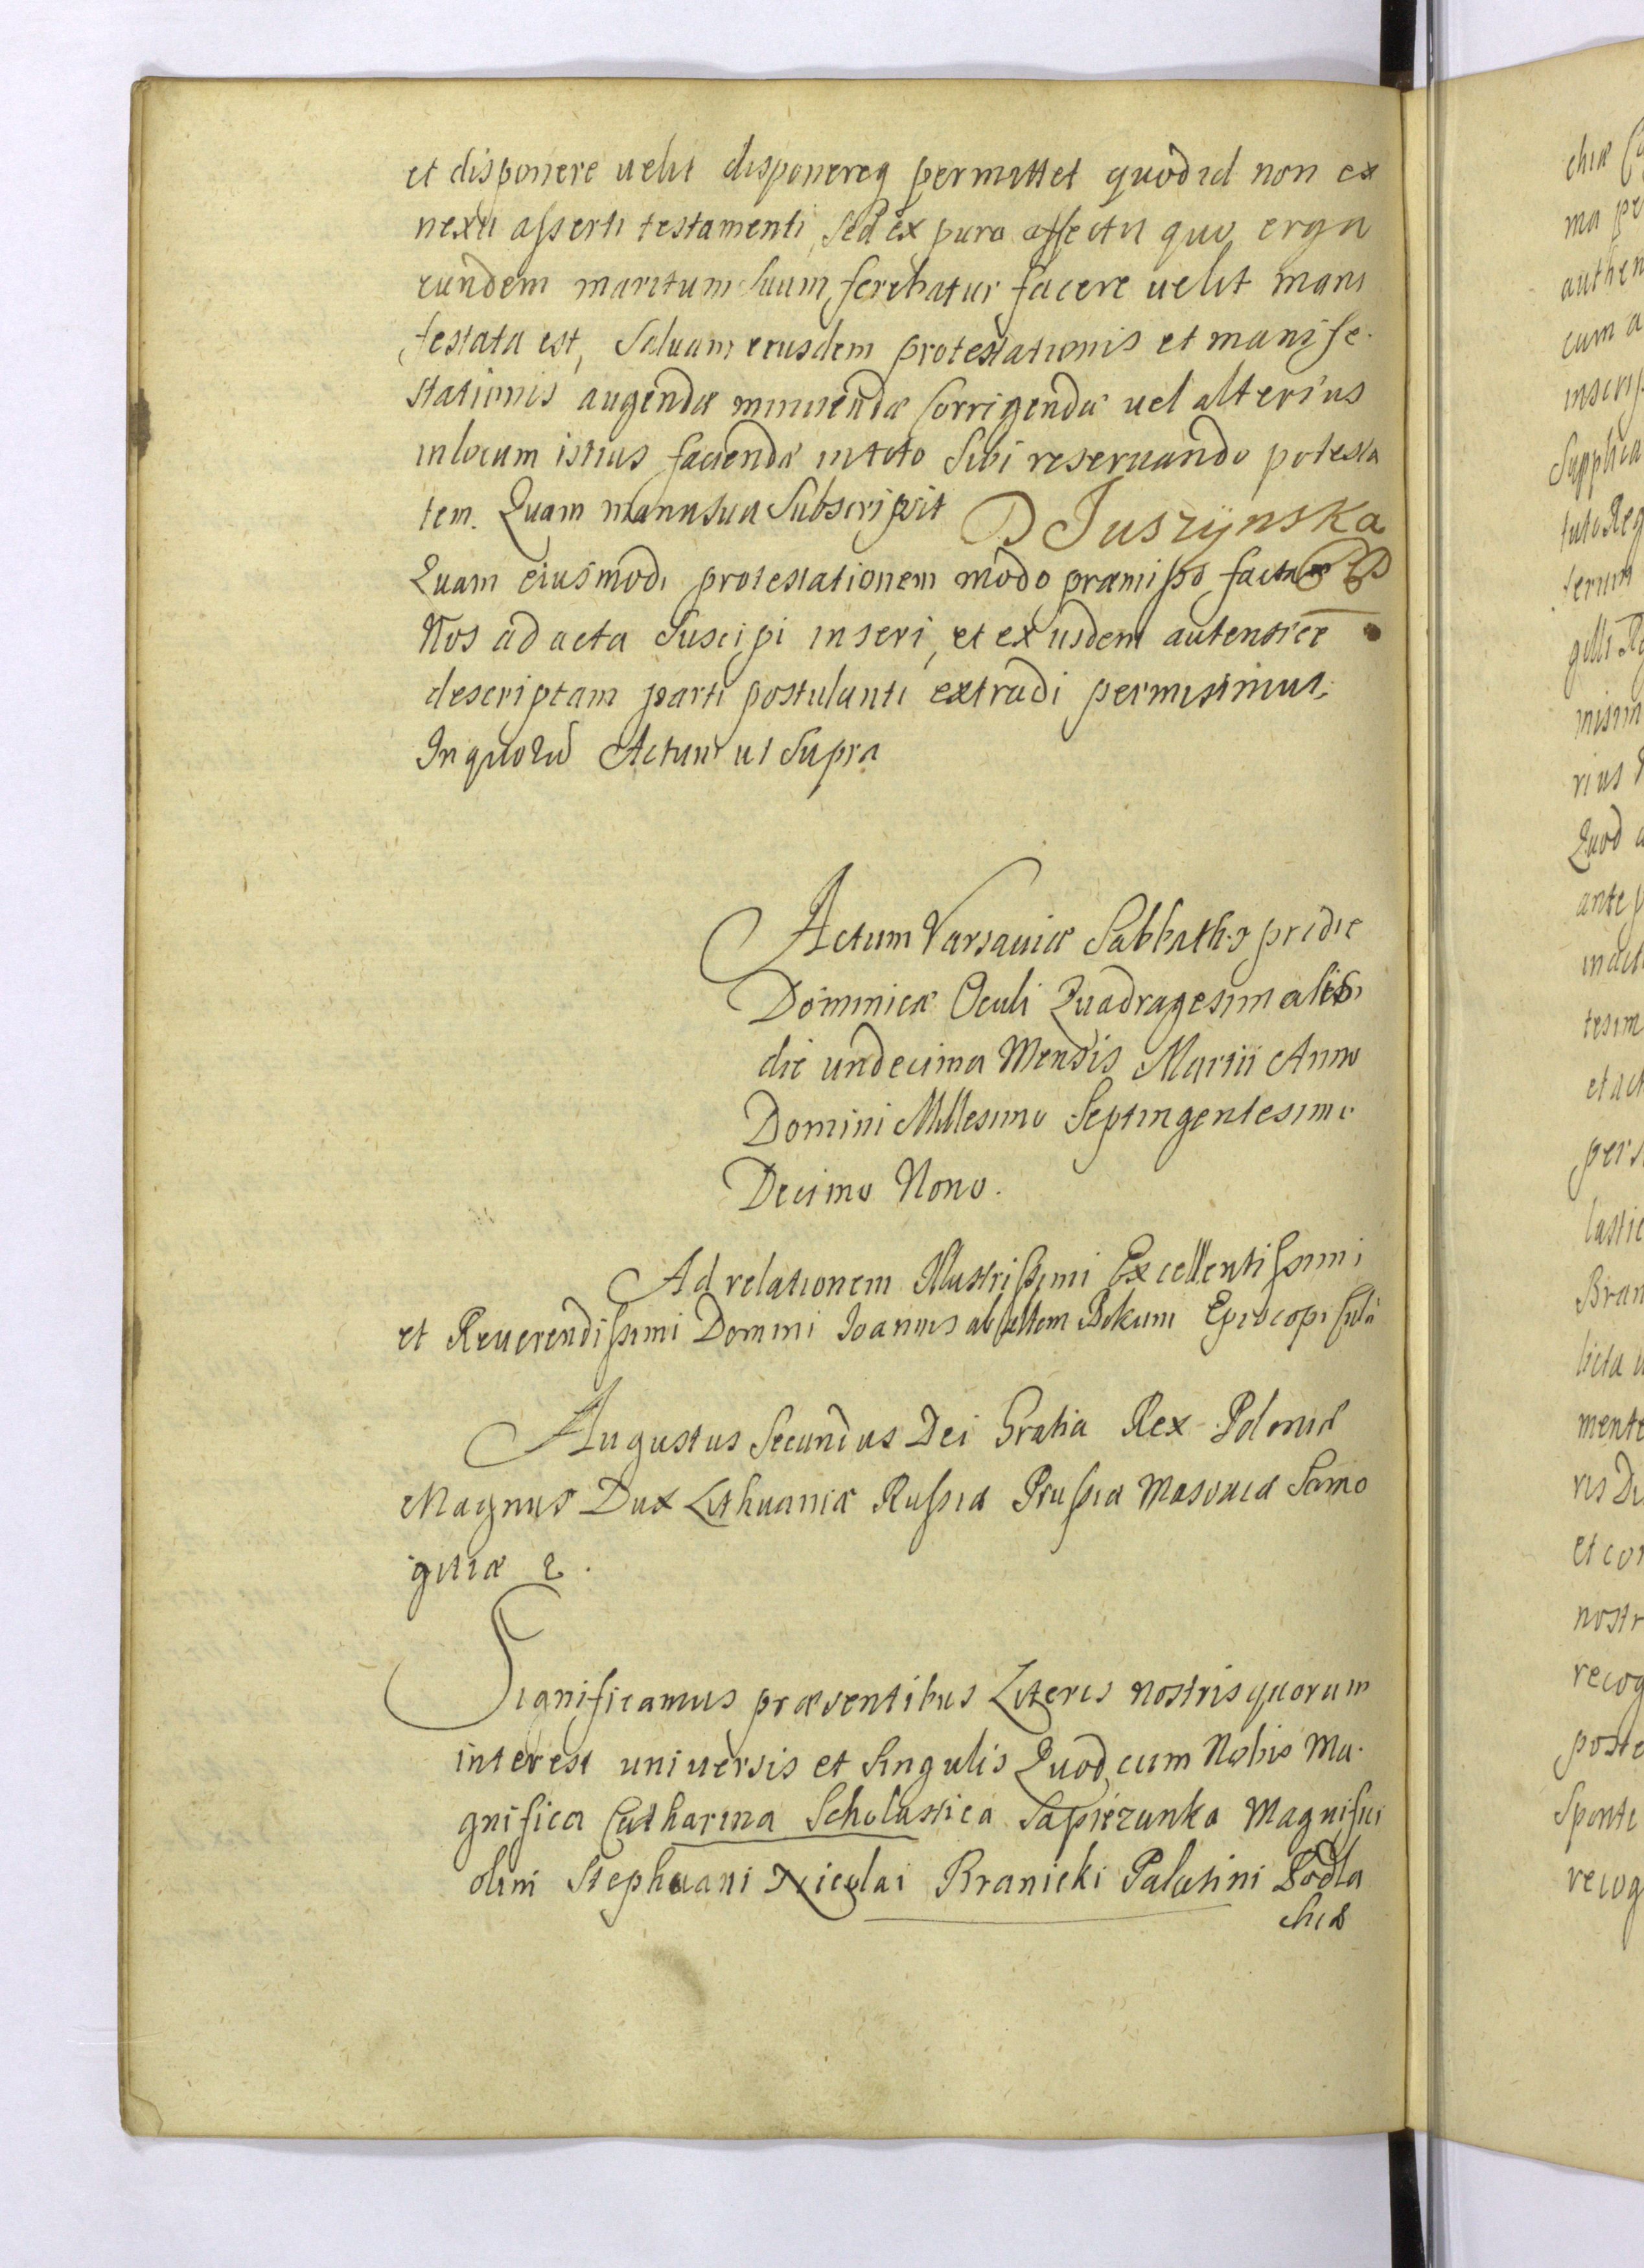 et disponere uelit disponereq permittet quod id non ex
nexu asserti testamenti, sed ex puro affectu quo erga
eundem maritum suum ferebatur facere uelit mani
festata est, Saluam eiusdem protestationis et manife-
stationis augendæ minuendæ corrigendæ uel alterius
in locum istius faciendæ in toto Sibi reseruando potesta
tem. Quam manu sua Subscripsit D Juszÿnska
Quam eiusmodi protestationem modo præmisso factam
Nos ad acta Suscipi inseri, et ex iisdem autentice
descriptam parti postulanti extradi permisimus.
In quorū Actum ut Supra
Actum Varsauiæ Sabbatho pridie
Dominicæ Oculi Quadragesimalis
die undecima Mensis Martii Anno
Domini Millesimo Septingentesimo
Decimo Nono.
Ad relationem Illustrissimi Excellentissimi
et Reuerendissimi Domini Joannis Bokum Episcopi
Augustus Secundus Dei Gratia Rex Poloniæ
Magnus Dux Lithuaniæ Russiæ Prussiæ Masouiæ Samo
gitiæ
Significamus præsentibus Literis nostris quorum
interest uniuersis et Singulis Quod cum Nobis Ma-
gnifica Catharina Scholastica Sapiezanka Magnifici
olim Stephani Nicolai Branicki Palatini Podla
chiæ